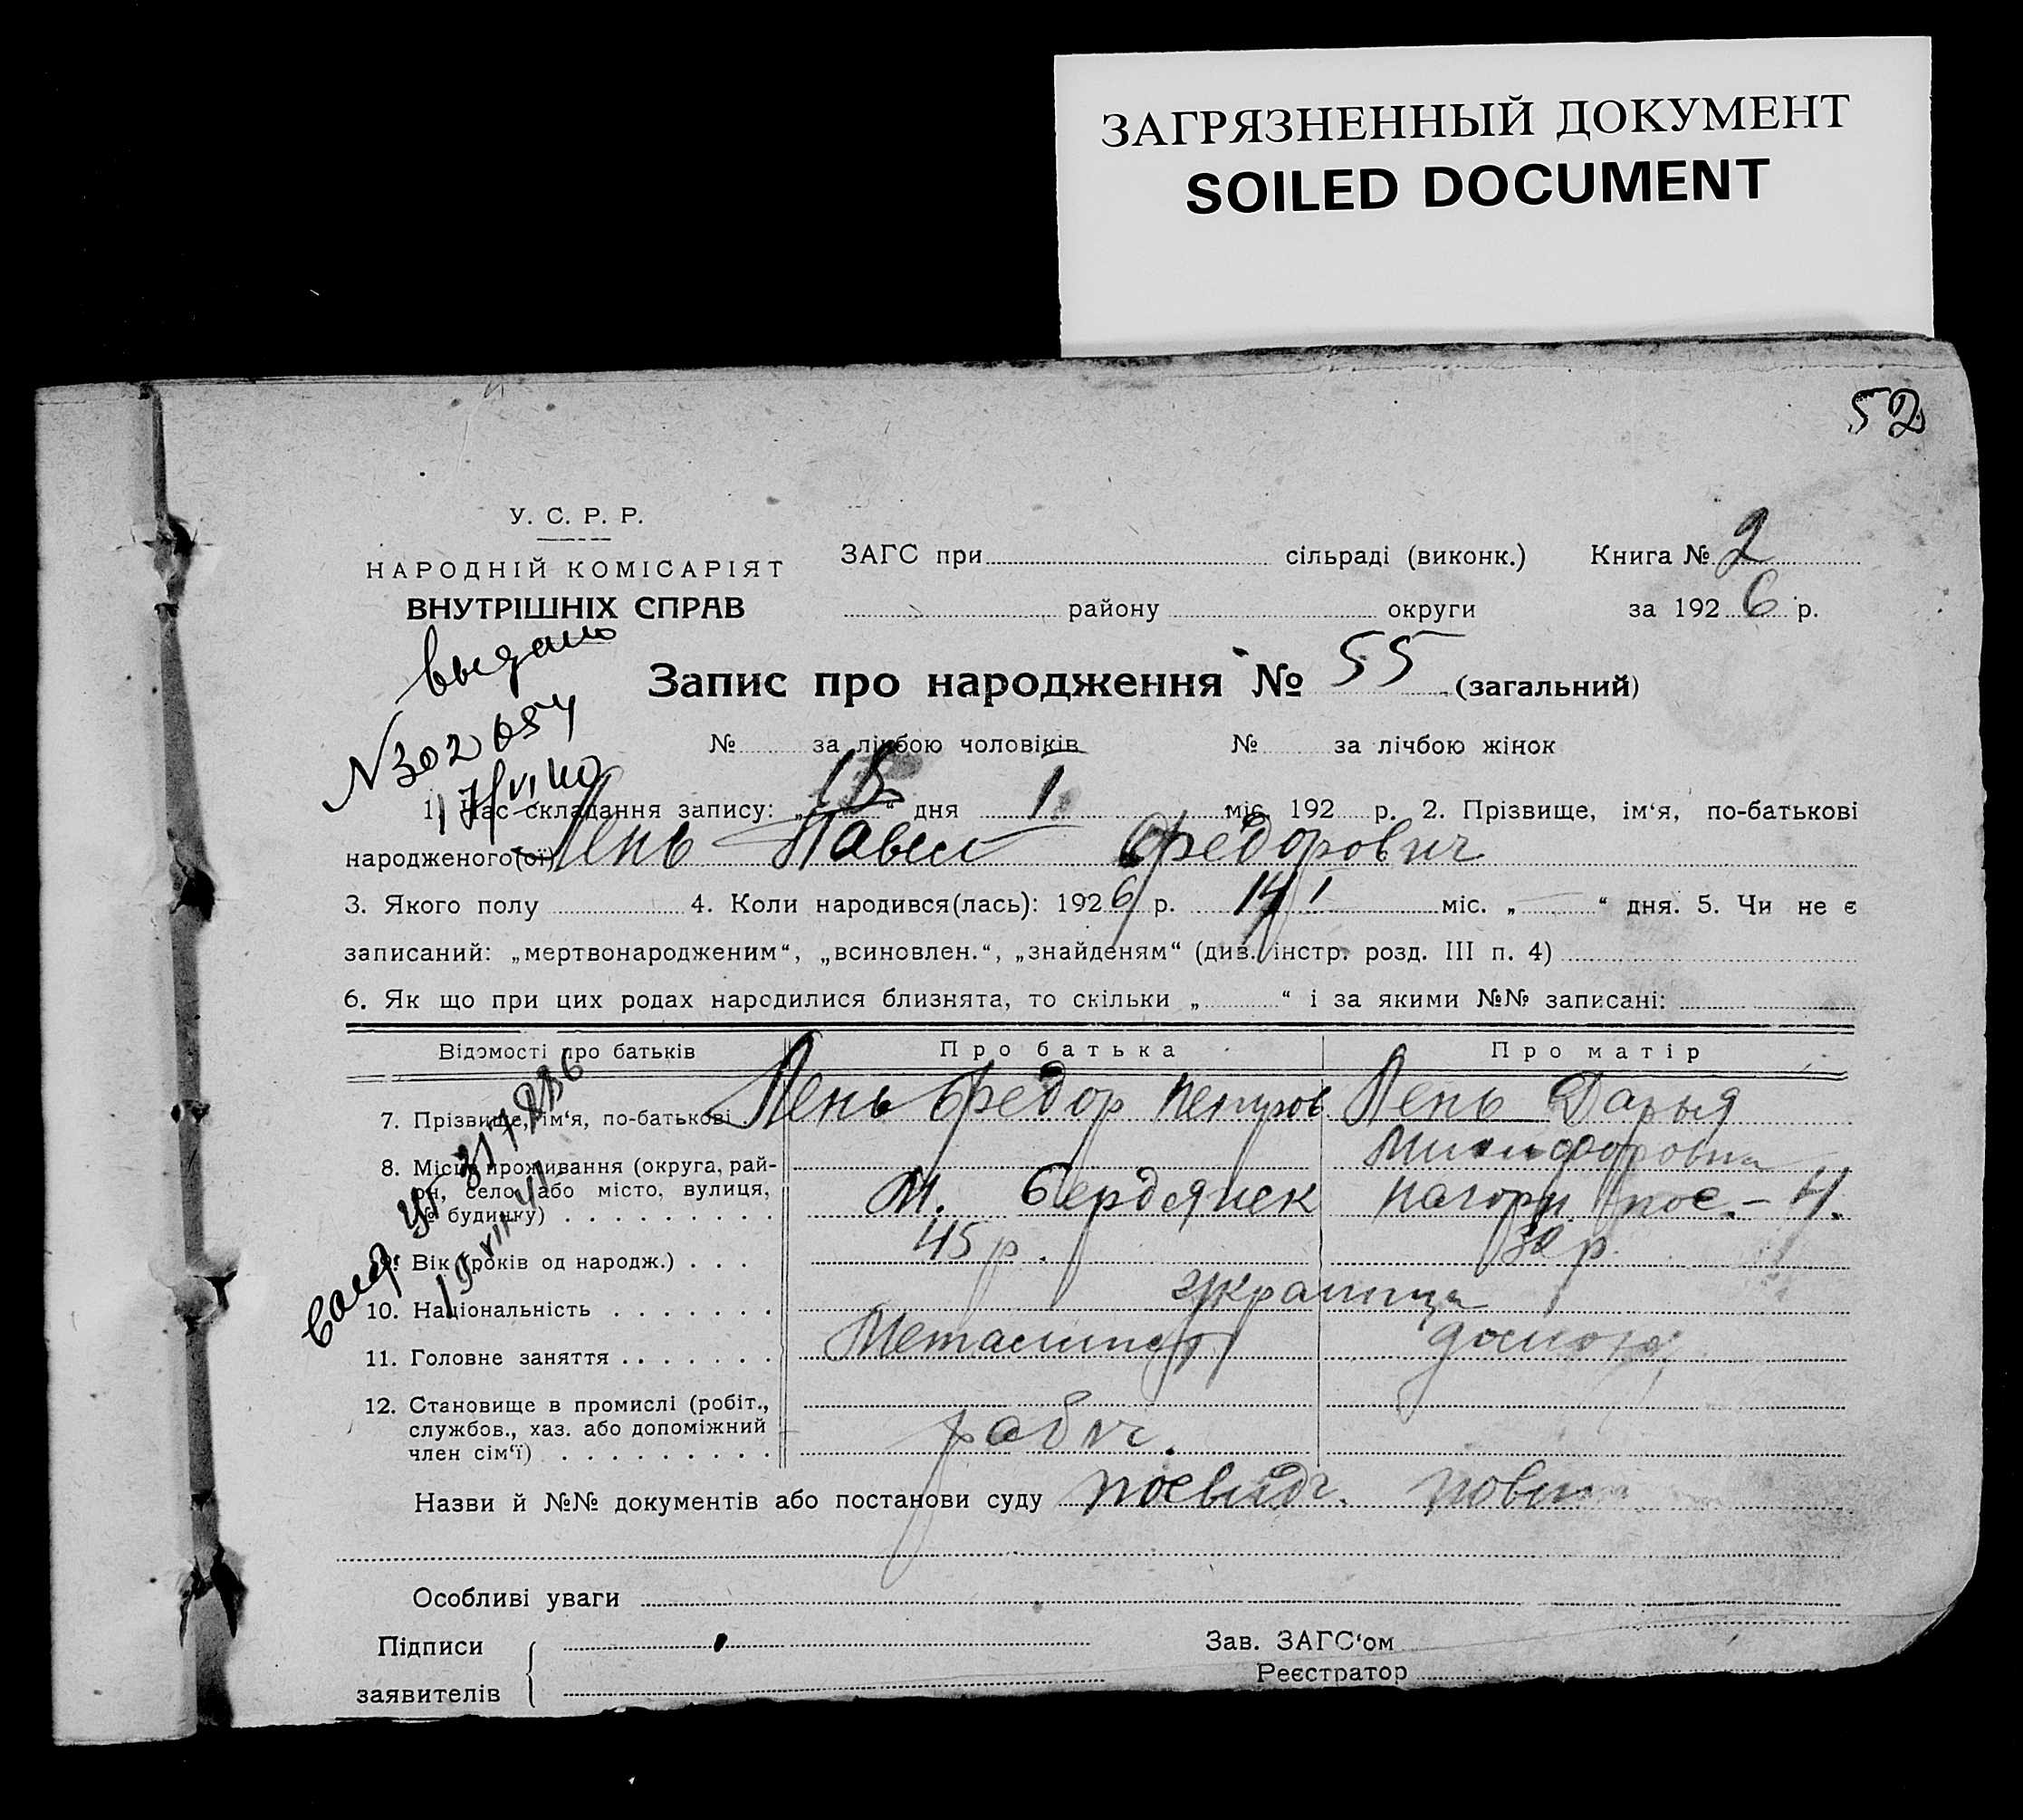 ЗАГРЯЗНЕННЫЙ ДОКУМЕНТ
SOILED DOCUMENT
52
У. С. Р. Р.
НАРОДНІЙ КОМІСАРІЯТ
ВНУТРІШНІХ СПРАВ
ЗАГС при сільраді (виконк.) Книга № 2
району округи за 1926 р.
выдано
N302054
17/VI 40
Запис про народження № 55 (загальний)
№ за лічбою чоловіків № за лічбою жінок
1. Час складання запису: „18“ дня 1 міс. 192 р. 2. Прізвище, ім‘я, по-батькові
народженого(ої) Лень Павел Федорович
3. Якого полу 4. Коли народився(лась): 1926 р. 14 1 міс. „ “ дня. 5. Чи не є
записаний: „мертвонародженим“, „всиновлен.“, „знайденям“ (див. інстр. розд. III п. 4)
6. Як що при цих родах народилися близнята, то скільки „ “ і за якими №№ записані:
Відомості про батьків Про батька Про матір
7. Прізвище, ім‘я, по-батькові Лень Федор Петров. Лень Дарья
8. Місце проживання (округа, рай-
он, село або місто, вулиця,
№ будинку) М. Бердянск нагорн. пос. - 4.
9. Вік (років од народж.) 45 р. 38 р.
10. Національність украинца
11. Головне заняття Металист домохоз
12. Становище в промислі (робіт.,
службов., хаз. або допоміжний
член сім‘ї) рабоч.
Назви й №№ документів або постанови суду посвидч.
Особливі уваги
Підписи
заявителів
Зав. ЗАГС‘ом
Реєстратор